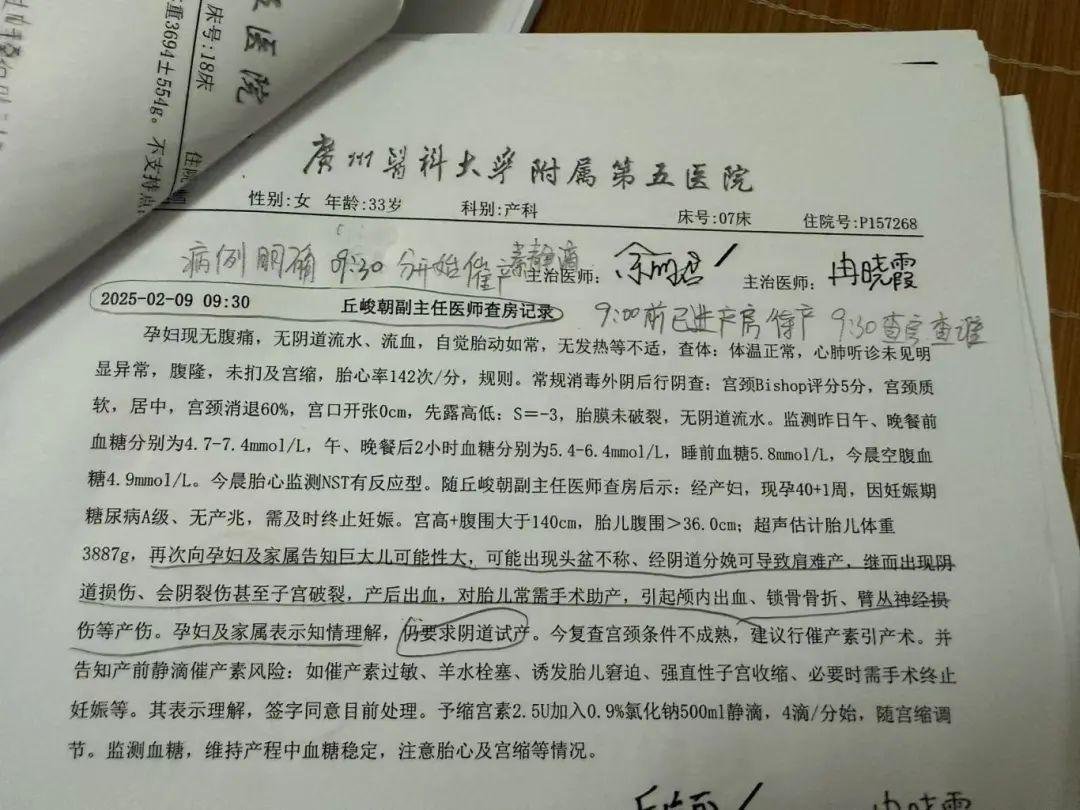 医院
床号:18床
重3694±554g。不支持点
廣州醫科大學附属第五医院
性别:女 年龄:33岁 科别:产科 床号:07床 住院号:P157268
病例明确 09:30 分开始催产素静滴
主治医师: 主治医师: 冉晓霞
2025-02-09 09:30 丘峻朝副主任医师查房记录
9:00前已进产房待产 9:30查房查谁
孕妇现无腹痛，无阴道流水、流血，自觉胎动如常，无发热等不适，查体：体温正常，心肺听诊未见明
显异常，腹隆，未扪及宫缩，胎心率142次/分，规则。常规消毒外阴后行阴查：宫颈Bishop评分5分，宫颈质
软，居中，宫颈消退60%，宫口开张0cm，先露高低：S=-3，胎膜未破裂，无阴道流水。监测昨日午、晚餐前
血糖分别为4.7-7.4mmol/L，午、晚餐后2小时血糖分别为5.4-6.4mmol/L，睡前血糖5.8mmol/L，今晨空腹血
糖4.9mmol/L。今晨胎心监测NST有反应型。随丘峻朝副主任医师查房后示：经产妇，现孕40+1周，因妊娠期
糖尿病A级、无产兆，需及时终止妊娠。宫高+腹围大于140cm，胎儿腹围＞36.0cm；超声估计胎儿体重
3887g，再次向孕妇及家属告知巨大儿可能性大，可能出现头盆不称、经阴道分娩可导致肩难产，继而出现阴
道损伤、会阴裂伤甚至子宫破裂，产后出血，对胎儿常需手术助产，引起颅内出血、锁骨骨折、臂丛神经损
伤等产伤。孕妇及家属表示知情理解，仍要求阴道试产。今复查宫颈条件不成熟，建议行催产素引产术。并
告知产前静滴催产素风险：如催产素过敏、羊水栓塞、诱发胎儿窘迫、强直性子宫收缩、必要时需手术终止
妊娠等。其表示理解，签字同意目前处理。予缩宫素2.5U加入0.9%氯化钠500ml静滴，4滴/分始，随宫缩调
节。监测血糖，维持产程中血糖稳定，注意胎心及宫缩等情况。
冉晓霞